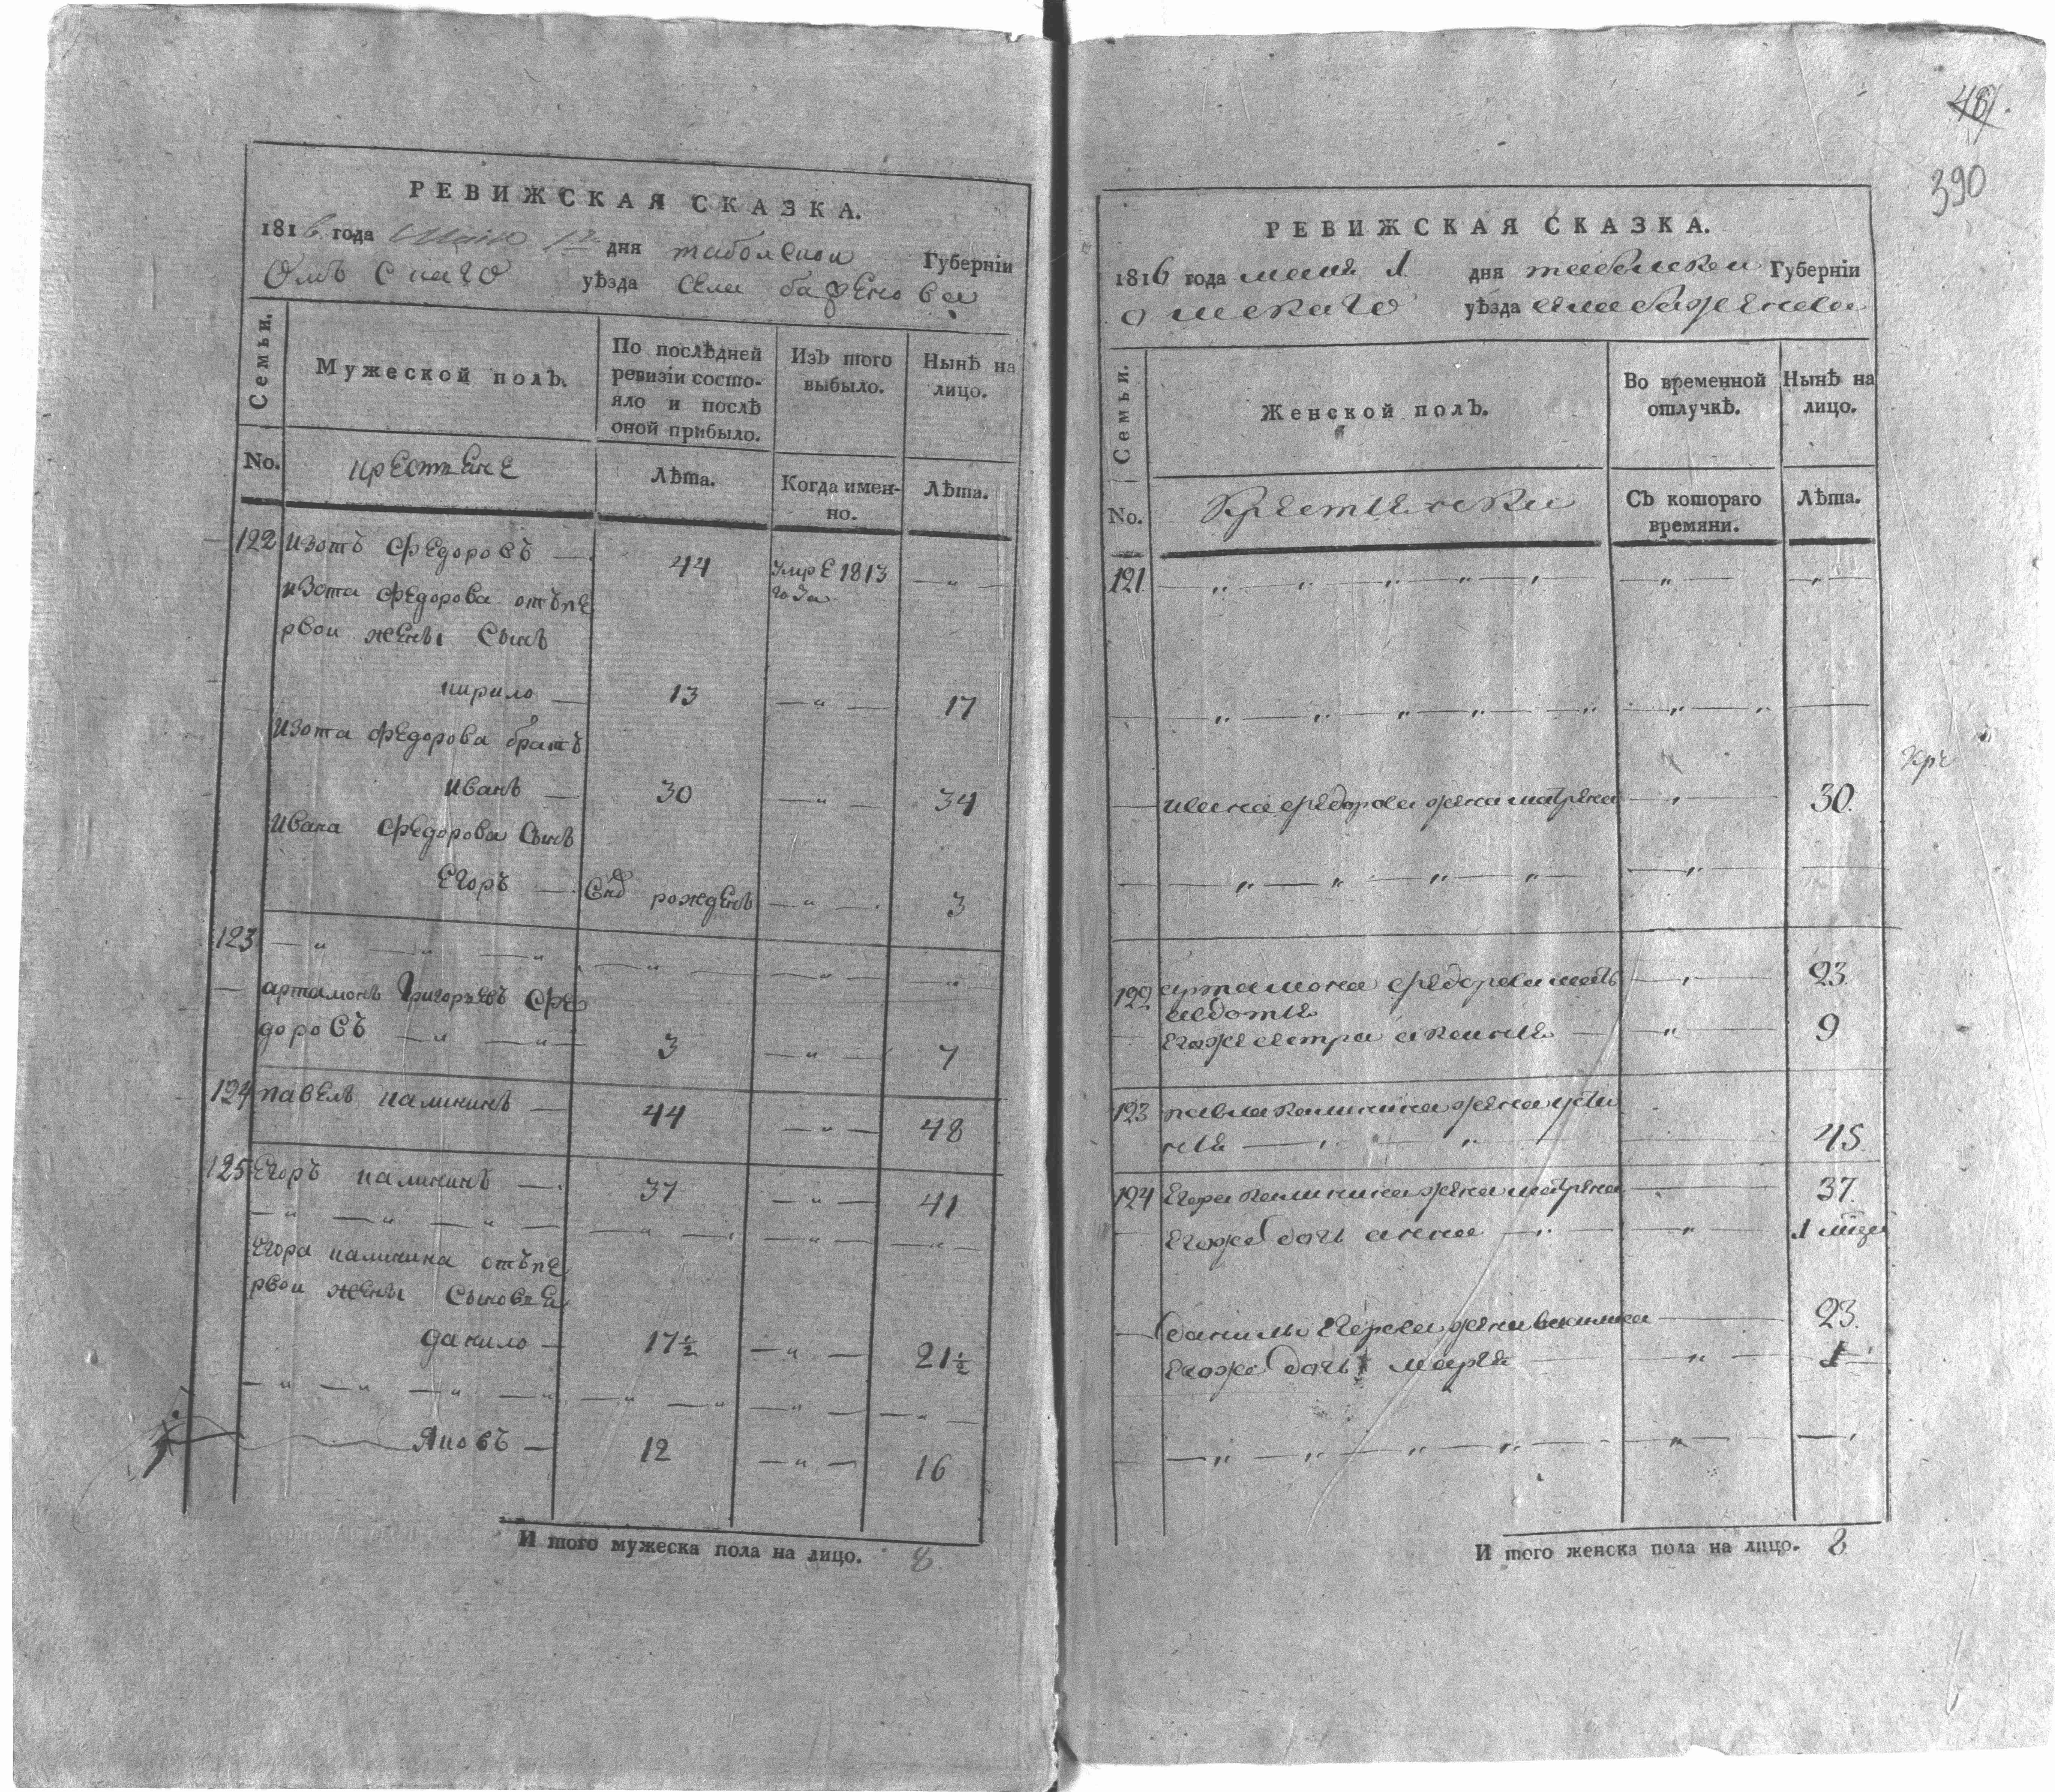 РЕВИЖСКАЯ СКАЗКА.
1816 года Маия 1 дня таболской Губернїи
Омъскаго уѣзда села баженова
Семьи.
Мужеской полъ.
По послѣдней ревизїи состо-
яло и послѣ
оной прибыло.
Изъ того
выбыло.
Нынѣ на
лицо.
No.
крестьене
Лѣта.
Когда имен-
но.
Лѣта.
122 изотъ федоровъ — 44 умре 1813 — „ —
года
изота федорова отъпе
рвои жены сынъ
кирило — 13 — „ — 17
изота федорова братъ
иванъ — 30 — „ — 34
ивана федорова сынъ
Егоръ — рожденъ — „ — 3
123 — „ — „ — „ — „ — „ — „
артамонъ Григорьевъ фе
доровъ — „ — „ — 3 — „ — 7
124 павелъ калининъ — 44 — „ — 48
125 Егоръ калининъ — 37 — „ — 41
— „ — „ — „ — „ — „ — „ —
Егора калинина отъпе
рвои жены сыновеи
данило — 17½ — „ — 21½
— „ — „ — „ — „ — „ — „ — „ — „ —
Яковъ — 12 — „ — 16
И того мужеска пола на лицо. 8.
481.
390
РЕВИЖСКАЯ СКАЗКА.
1816 года маия 1 дня табольскои Губернїи
омскаго уѣзда села баженова
Семьи.
Женской полъ.
Во временной
отлучкѣ.
Нынѣ на
лицо.
No.
Крестьенски
Съ котораго
времяни.
Лѣта.
121 — „ — „ — „ — „ — „ — „ — „ —
— „ — „ — „ — „ — „ — „ — „ —
ивана федорова жена матрена — „ — 30.
— „ — „ — „ — „ — „ —
122 артамона федорова мать — „ — 23.
авдотья
егоже сестра — „ — 9
123 павла калинина жена усти
нья — „ — „ — 45.
124 Егора калинина жена матрена — 37.
Егоже дочь анна — „ — „ — 1 мцъ
данилы Егорова жена василиса — 23.
Егоже дочь марья — „ — 1
— „ — „ — „ — „ — „ — „
И того женска пола на лицо. 8